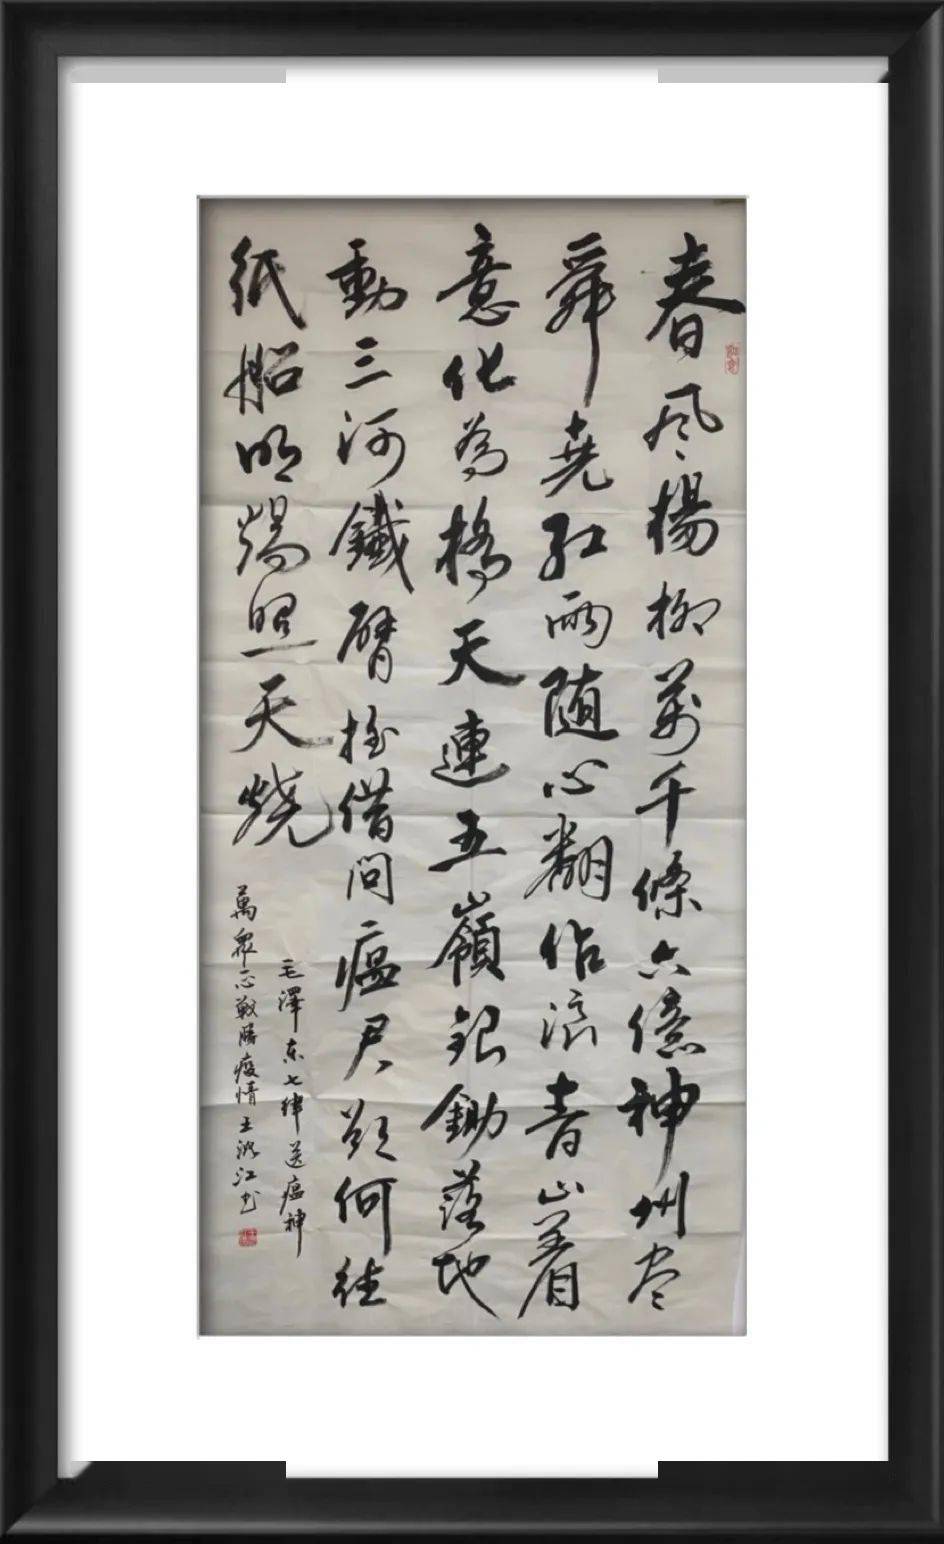 春风楊柳萬千條六億神州尽
舜堯红雨随心翻作浪青山着
意化為橋天連五嶺銀鋤落地
動三河鐵臂摇借问瘟君欲何往
纸船明燭照天燒
毛澤东七律送瘟神
萬眾一心戰勝疫情 王江书